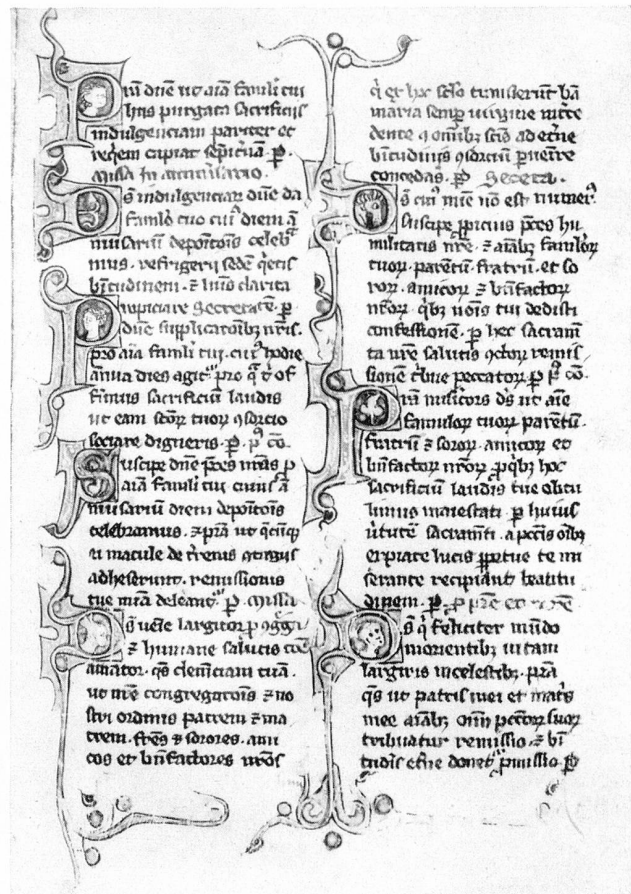 P iū dñe ut aīa famuli tui
hiis purgata sacrificiis
indulgenciam pariter et
requiem capiat sēpitnā. p.
Missa in anniversario.
Ds indulgenciar dñe da
famulo tuo cui diem ā
niu̇sarium depoitois celeb
mus. refrigerii sedē qetis
btitudinem. ⁊ luīs clarita
Propiciare Secreta tē. p
dñe supplicatoibȝ nris.
pro aīa famuli tui. cui hodie
annua dies agit pro q t of
ferimus sacrificiū laudis
ut eam scor tuor ꝯsorcio
sociare digneris. p. p cō.
Suscipe dñe pces nras p
aīa famuli tui cuius ā
niusarium diem depoitois
celebramus. ⁊ pta ut qcūq
ei macule de trenis ꝯtagiis
adheserunt. remissionis
tue mīa deleant. p. Missa
Ds uenie largitor ꝯggi
⁊ humane salutis
amator. qs clemēciam tuā.
ut nre congregatois ⁊ no
stri ordinis patrem ⁊ ma
trem. frēs ⁊ sorores. ami
cos et bnfactores nros
qi ex hoc sclo tnsierunt bā
maria semp uirgine intce
dente ꝯ omibȝ scis ad etne
btitudinis ꝯsorciū puenire
concedas. p Secreta.
Ds cui mie nō est numer
suscipe ppicius pces hu
militatis nre. ⁊ aiabȝ famulor
tuor. parentū. fratrū. et so
ror. amicor ⁊ bnfactor
nror. qibȝ nois tui dedisti
confessionē. p hec sacram
ta nre salutis ctor remis
sionē tbue peccator. p p cō.
Piū misicors ds ut aīe
famulor tuor parentū.
fratrū ⁊ soror. amicor et
bnfactor nror. p qibȝ hoc
sacrificiū laudis tue obtu
limus maiestati. p huius
uirtutē sacramti. a pccis oibȝ
expiate lucis ppetue te mi
serante recipiant beatitu
dinem. p. p pre et mre
Ds qi feliciter in mūdo
morientibȝ uitam
largiris in celestibȝ. pta
qs ut patris mei et matis
mee aiabȝ oīm pctor suor
tribuatur remissio. ⁊ bti
tudīs etne donet pmissio p